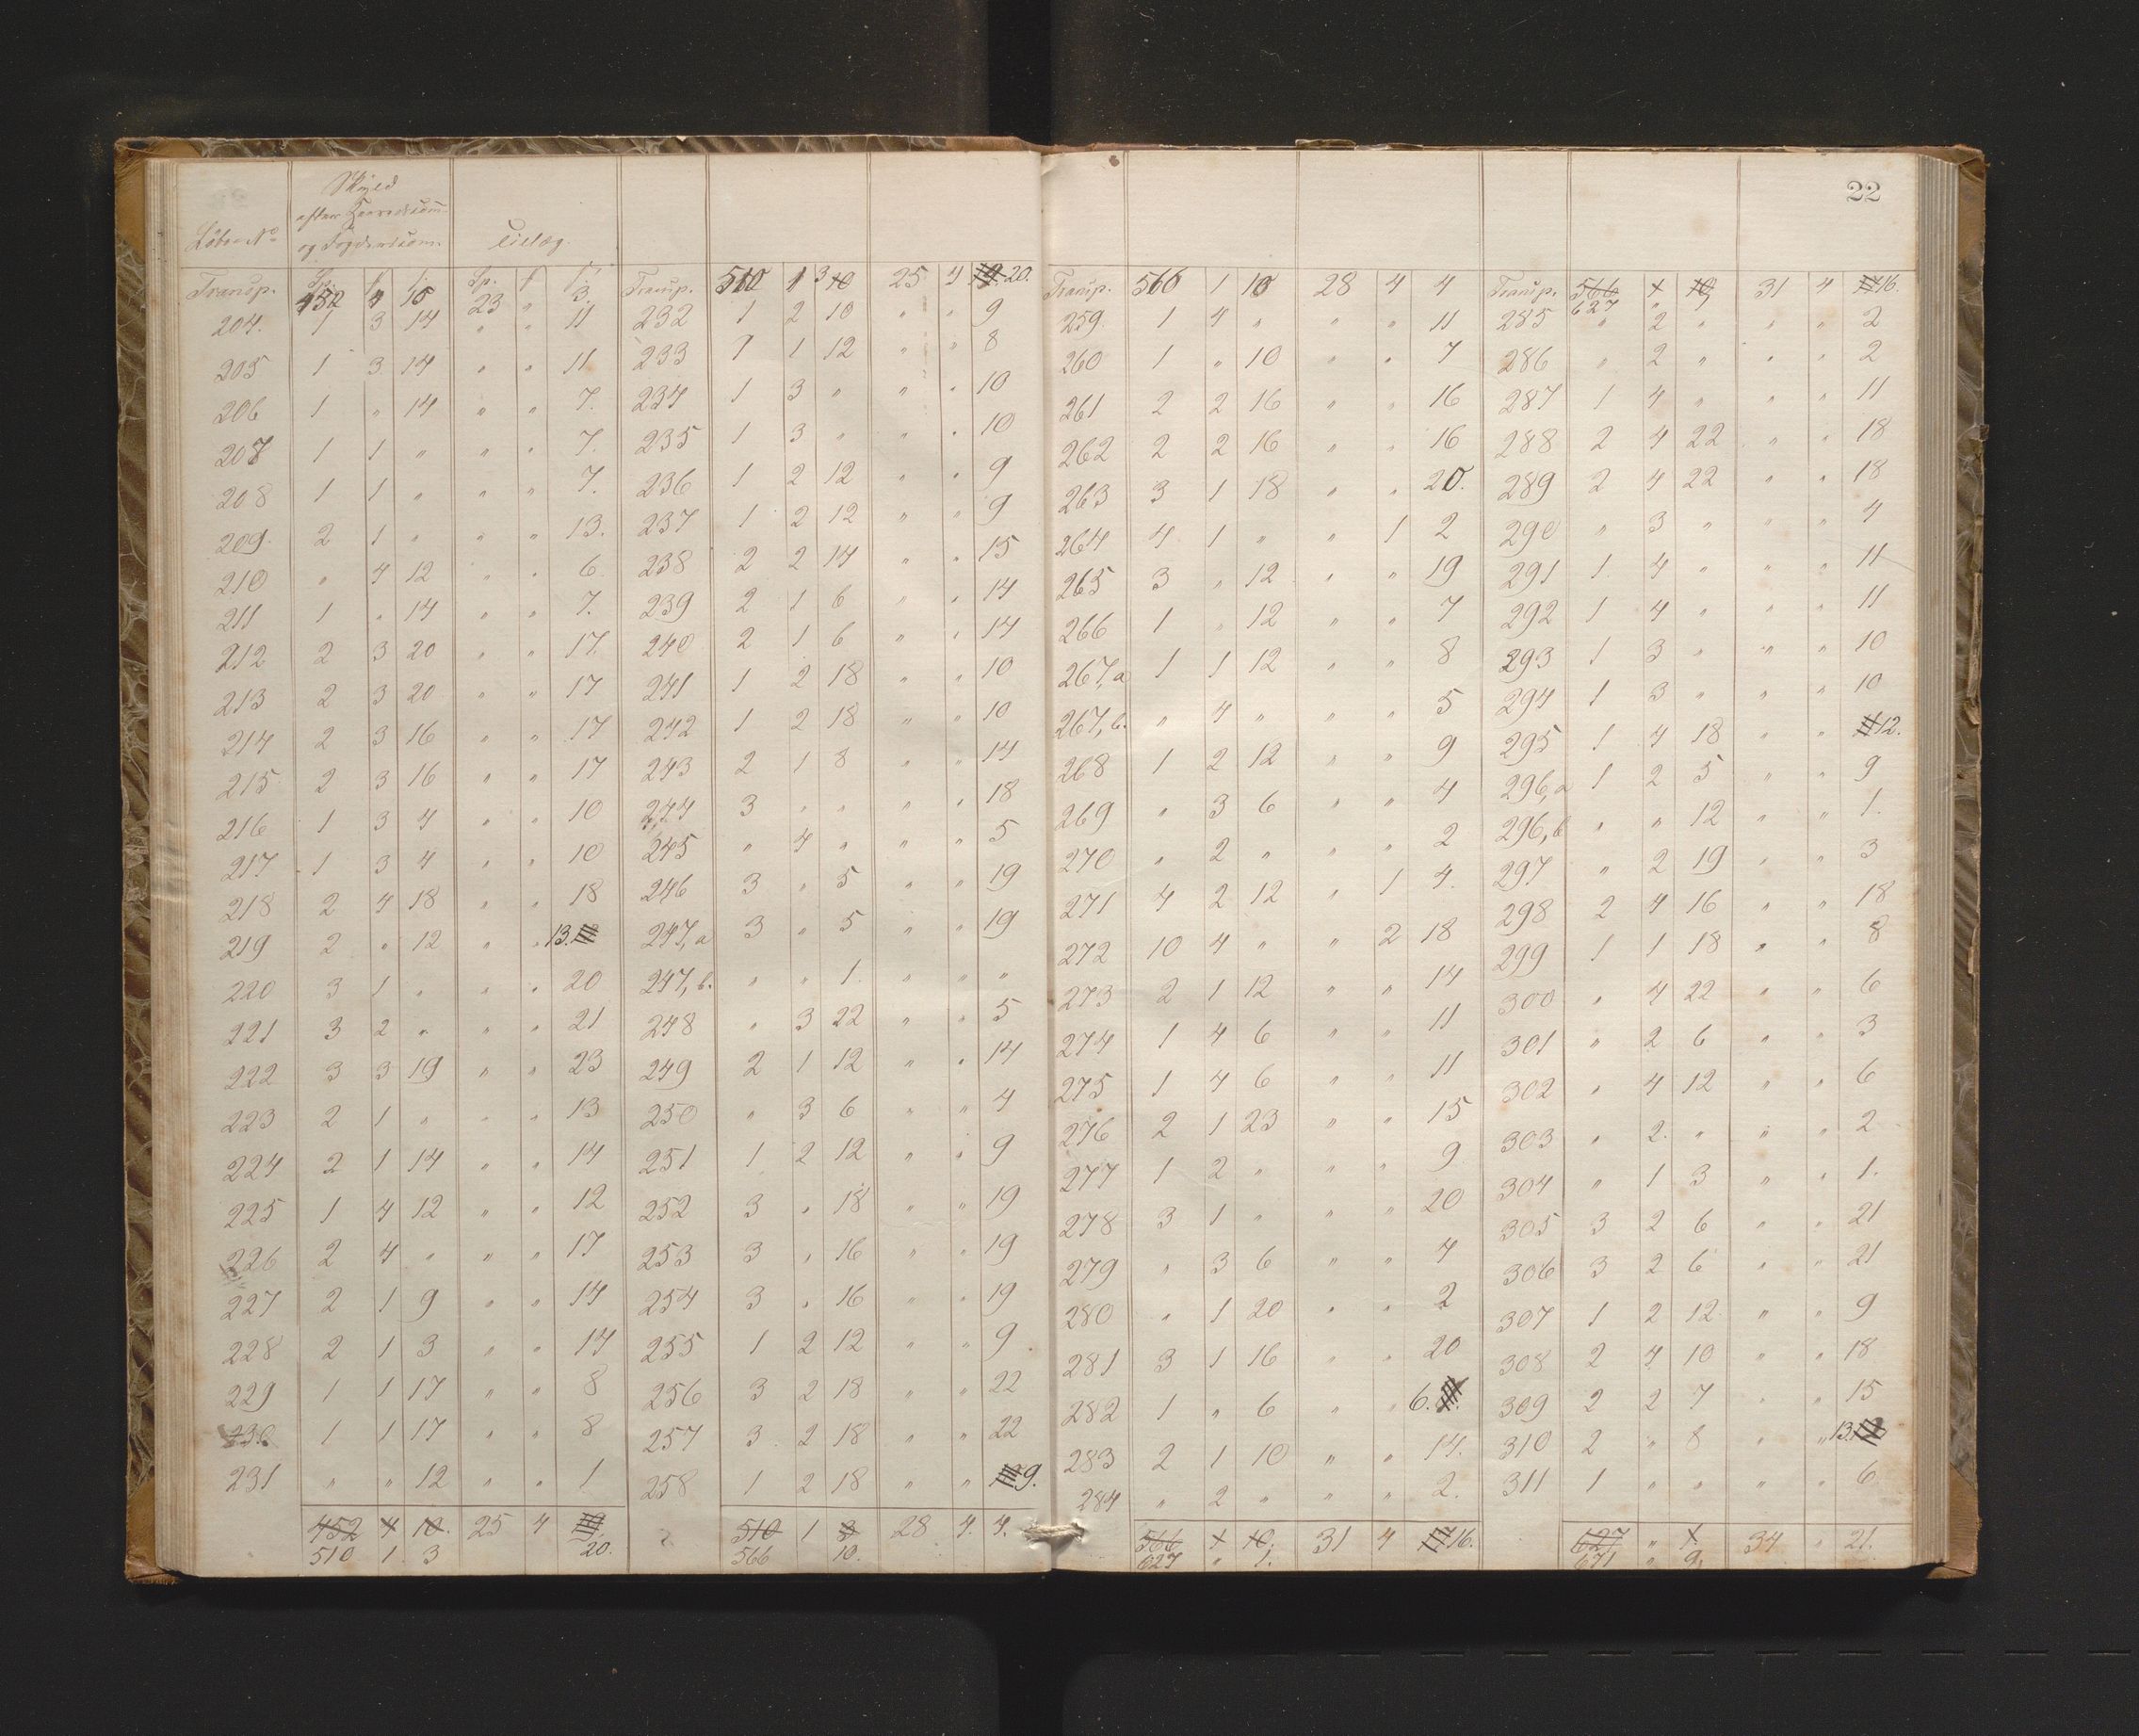 22
Skyld
efter Herredsom-
Løbe No og Fogderisom. Tillæg.
Transp. Sp. 452 4 10 Sp. 23 " 3.
204. 1 3 14 " " 11
205 1 3 14 " " 11
206 1 " 14 " " 7.
207 1 1 " " " 7.
208 1 1 " " " 7.
209. 2 1 " " " 13.
210 " 4 12 " " 6
211 1 " 14 " " 7.
212 2 3 20 " " 17.
213 2 3 20 " " 17
214 2 3 16 " " 17
215 2 3 16 " " 17
216 1 3 4 " " 10
217 1 3 4 " " 10
218 2 4 18 " " 18
219 2 " 12 " " 13.
220 3 1 " " " 20
221 3 2 " " " 21
222 3 3 19 " " 23
223 2 1 " " " 13
224 2 1 14 " " 14
225 1 4 12 " " 12
226 2 4 " " " 17
227 2 1 9 " " 14
228 2 1 3 " " 14
229 1 1 17 " " 8
230 1 1 17 " " 8
231 " " 12 " " 1
452 4 10. 25 4
510 1 3 20.
Transp. 510 1 3 10 25 4 20.
232 1 2 10 " " 9
233 1 1 12 " " 8
234 1 3 " " " 10
235 1 3 " " " 10
236 1 2 12 " " 9
237 1 2 12 " " 9
238 2 2 14 " " 15
239 2 1 6 " " 14
240 2 1 6 " " 14
241 1 2 18 " " 10
242 1 2 18 " " 10
243 2 1 8 " " 14
244 3 " " " " 18
245 " 4 " " " 5
246 3 " 5 " " 19
247, a 3 " 5 " " 19
247, b. " " 1. " " "
248 " 3 22 " " 5
249 2 1 12 " " 14
250 " 3 6 " " 4
251 1 2 12 " " 9
252 3 " 18 " " 19
253 3 " 16 " " 19
254 3 " 16 " " 19
255 1 2 12 " " 9
256 3 2 18 " " 22
257 3 2 18 " " 22
258 1 2 18 " " 9.
510 1 3 28 4. 4.
566 10.
Transp. 566 1 10 28 4 4
259. 1 4 " " " 11
260 1 " 10 " " 7
261 2 2 16 " " 16
262 2 2 16 " " 16
263 3 1 18 " " 20.
264 4 1 " " 1 2
265 3 " 12 " " 19
266 1 " 12 " " 7
267, a 1 1 12 " " 8
267, b. " 4 " " " 5
268 1 2 12 " " 9
269 " 3 6 " " 4
270 " 2 " " " 2
271 4 2 12 " 1 4.
272 10 4 " " 2 18
273 2 1 12 " " 14
274 1 4 6 " " 11
275 1 4 6 " " 11
276 2 1 23 " " 15
277 1 2 " " " 9
278 3 1 " " " 20
279 " 3 6 " " 4
280 " 1 20 " " 2
281 3 1 16 " " 20
282 1 " 6 " " 6.
283 2 1 10 " " 14.
284 " 2 " " " 2.
566 1 10. 31 4 16.
627 " 1.
Transp. 566 1 10 31 4 16.
627 "
285 " 2 " " " 2
286 " 2 " " " 2
287 1 4 " " " 11
288 2 4 22 " " 18
289 2 4 22 " " 18
290 " 3 " " " 4
291 1 4 " " " 11
292 1 4 " " " 11
293 1 3 " " " 10
294 1 3 " " " 10
295 1 4 18 " " 12.
296, a 1 2 5 " " 9
296, b " " 12 " " 1.
297 " 2 19 " " 3
298 2 4 16 " " 18
299 1 1 18 " " 8
300 " 4 22 " " 6
301 " 2 6 " " 3
302 " 4 12 " " 6
303 " 2. " " " 2
304 " 1 3 " " 1.
305 3 2 6 " " 21
306 3 2 6 " " 21
307 1 2 12 " " 9
308 2 4 10 " " 18
309 2 2 7 " " 15
310 2 " 8 " " 13.
311 1 " " " " 6
627 " 1 34 " 21.
671 " 9.